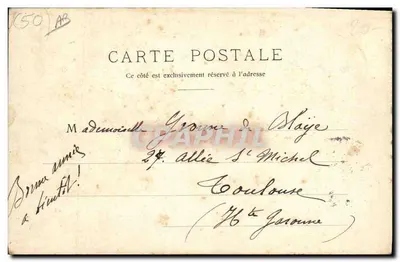 (50) AB
CARTE POSTALE
Ce côté est exclusivement réservé à l'adresse
Mademoiselle Yvonne de Blaÿe
27 Allée St Michel
Toulouse
(Hte Garonne)
Bonne année
à bientôt!